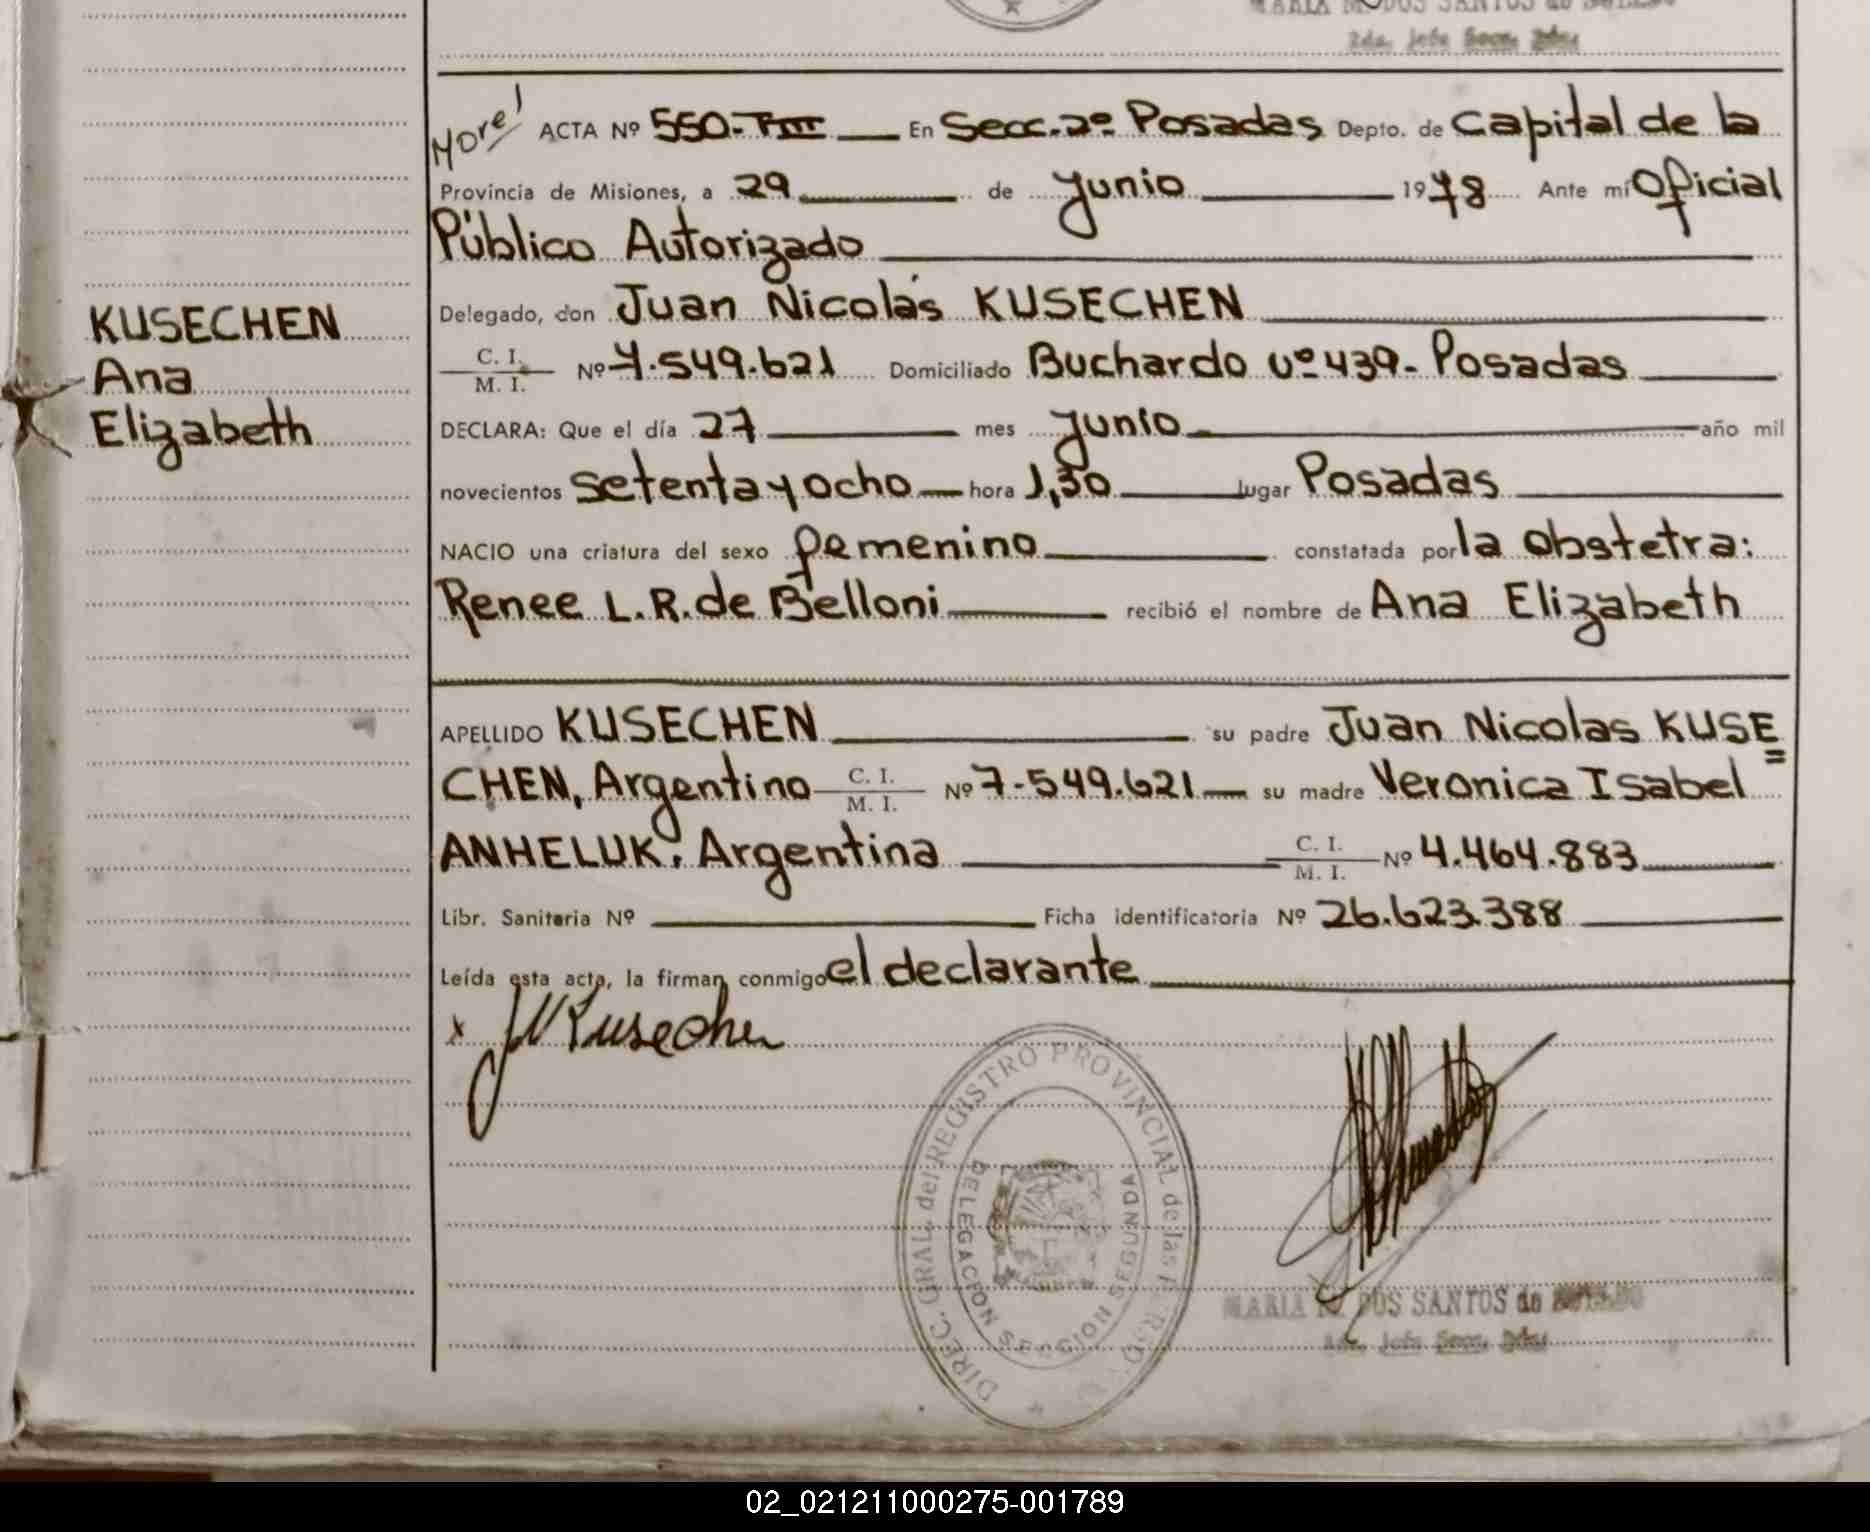 MARIA M. DOS SANTOS de
2da. Jefe Secc. 2da.
More!
ACTA Nº 550-TIII En Secc.2º Posadas Depto. de Capital de la
Provincia de Misiones, a 29 de junio 1978 Ante mí Oficial
Público Autorizado
KUSECHEN
Ana
Elizabeth
Delegado, don Juan Nicolás KUSECHEN
C. I.
M. I. Nº 7.549.621 Domiciliado Buchardo nº 439- Posadas
DECLARA: Que el día 27 mes junio año mil
novecientos setenta y ocho hora 1,30 lugar Posadas
NACIO una criatura del sexo femenino constatada por la obstetra:
Renee L.R. de Belloni recibió el nombre de Ana Elizabeth
APELLIDO KUSECHEN su padre Juan Nicolas KUSE=
CHEN, Argentino C. I.
M. I. Nº 7-549.621 su madre Veronica Isabel
ANHELUK, Argentina C. I.
M. I. Nº 4.464.883
Libr. Sanitaria Nº Ficha identificatoria Nº 26.623.388
Leída esta acta, la firman conmigo el declarante
x JNKusechen
DIREC. GRAL. del REGISTRO PROVINCIAL de las
DELEGACION SECCION SEGUNDA
MARIA DOS SANTOS de
Jefe Secc. 2da.
02_021211000275-001789